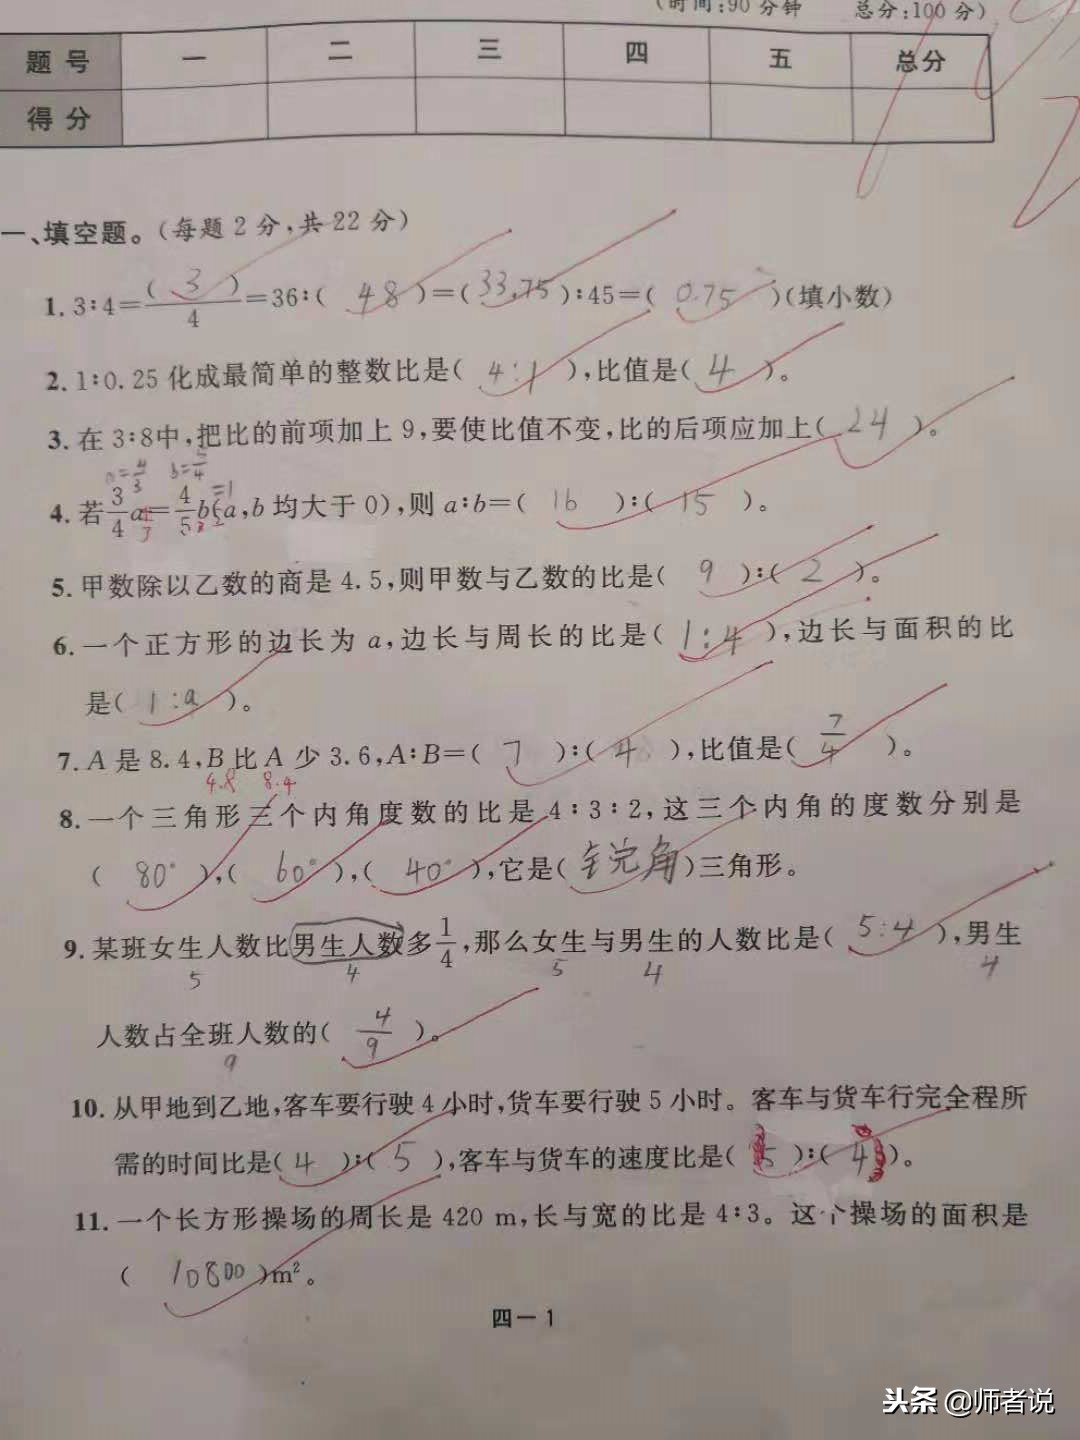 (时间:90分钟 总分:100分)
题号 一 二 三 四 五 总分
得分
一、填空题。(每题2分,共22分)
1. 3:4=( 3 )/4=36:( 48 )=( 33.75 ):45=( 0.75 )(填小数)
2. 1:0.25化成最简单的整数比是( 4:1 ),比值是( 4 )。
3. 在3:8中,把比的前项加上9,要使比值不变,比的后项应加上( 24 )。
a=4/3 b=5/4
=1
4. 若3/4a=4/5b(a,b均大于0),则a:b=( 16 ):( 15 )。
5. 甲数除以乙数的商是4.5,则甲数与乙数的比是( 9 ):( 2 )。
6. 一个正方形的边长为a,边长与周长的比是( 1:4 ),边长与面积的比
是( 1:a )。
7. A是8.4,B比A少3.6,A:B=( 7 ):( 4 ),比值是( 7/4 )。
4.8 8.4
8. 一个三角形三个内角度数的比是4:3:2,这三个内角的度数分别是
( 80° ),( 60° ),( 40° ),它是( 锐角 )三角形。
9. 某班女生人数比男生人数多1/4,那么女生与男生的人数比是( 5:4 ),男生
5 4 5 4 4
人数占全班人数的( 4/9 )。
9
10. 从甲地到乙地,客车要行驶4小时,货车要行驶5小时。客车与货车行完全程所
需的时间比是( 4 ):( 5 ),客车与货车的速度比是( 5 ):( 4 )。
11. 一个长方形操场的周长是420 m,长与宽的比是4:3。这个操场的面积是
( 10800 )m²。
四—1
头条 @师者说